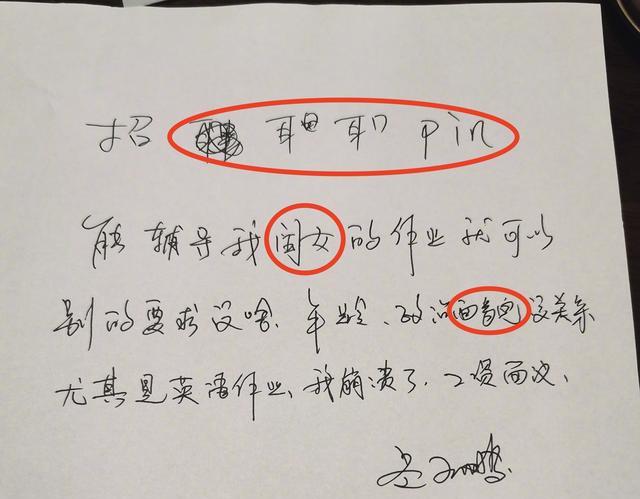 招 pin
能辅导我闺女的作业就可以
别的要求没啥.年龄、政治面貌没关系
尤其是英语作业、我崩溃了.工资面议、